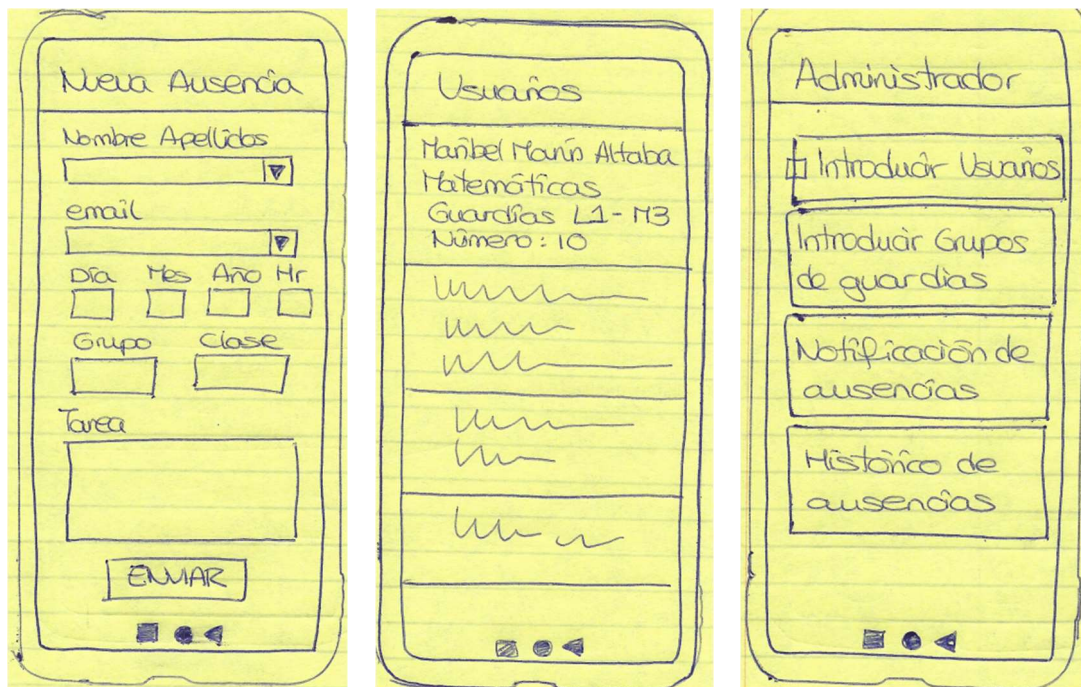 Nueva Ausencia
Nombre Apellidos
email
Día Mes Año Hr
Grupo Clase
Tarea
ENVIAR
Usuarios
Maribel Marín Altaba
Matemáticas
Guardias L1-M3
Número: 10
Administrador
Introducir Usuarios
Introducir Grupos
de guardias
Notificación de
ausencias
Histórico de
ausencias